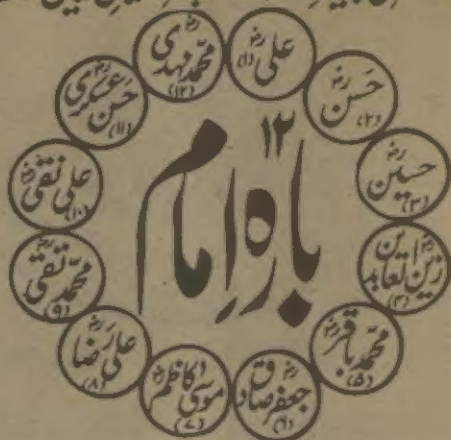 ۱۲
بارہ امام
علی رضؓ (۱)
حسن رضؓ (۲)
حسین رضؓ (۳)
زین العابدین رضؓ (۴)
محمد باقر رضؓ (۵)
جعفر صادق رضؓ (۶)
موسیٰ کاظم رضؓ (۷)
علی رضا رضؓ (۸)
محمد تقی رضؓ (۹)
علی نقی رضؓ (۱۰)
حسن عسکری رضؓ (۱۱)
محمد مہدی رضؓ (۱۲)